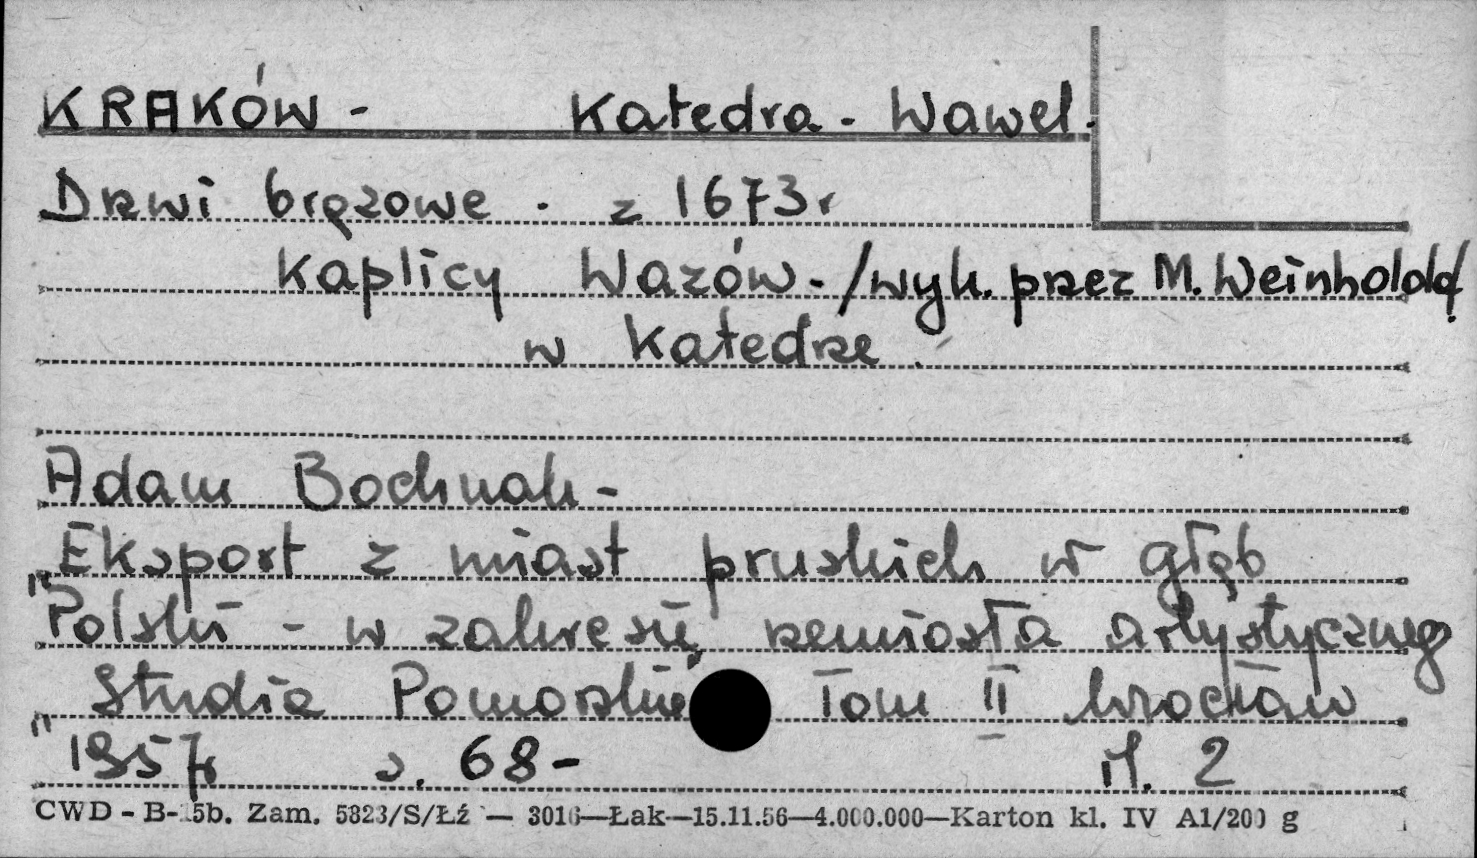 KRAKÓW - Katedra - Wawel.
Drzwi brązowe . z 1673r
Kaplicy Wazów - /wyk. przez M. Weinholdą
w Katedrze .
Adam Bochnak -
"Eksport z miast pruskich w głąb
Polski - w zakresie rzemiosła artystyczneg
"Studia Pomorskie" Tom II Wrocław
1957r s. 68 - il. 2
CWD - B-15b. Zam. 5823/S/Łź — 3016—Łak—15.11.56—4.000.000—Karton kl. IV A1/200 g